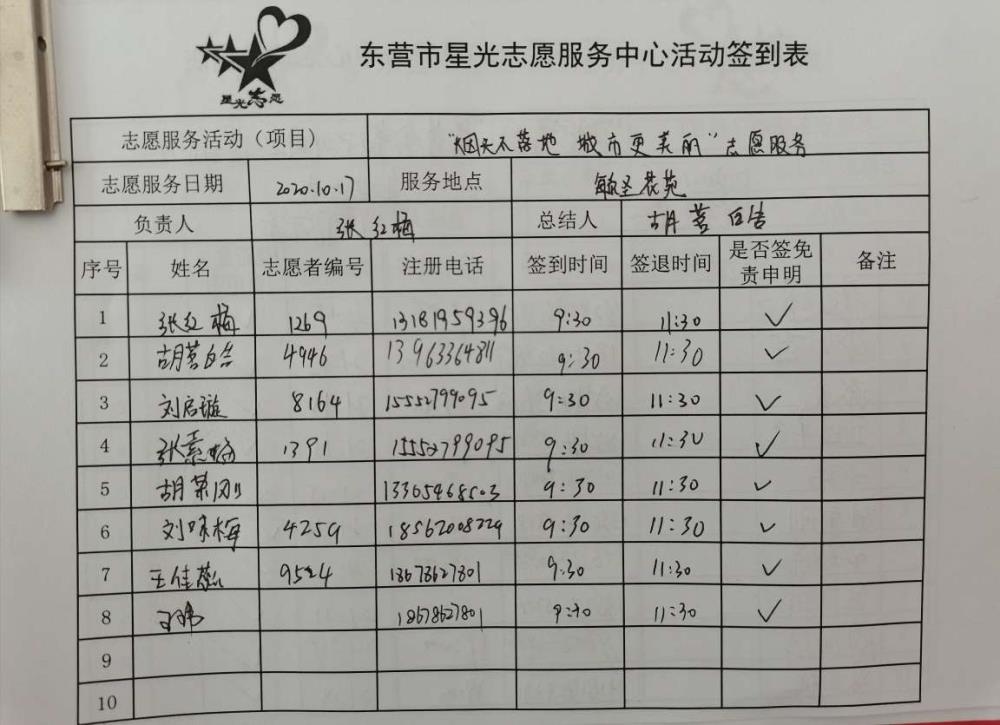 星光志愿
东营市星光志愿服务中心活动签到表
志愿服务活动（项目） "烟头不落地 城市更美丽"志愿服务
志愿服务日期 2020.10.17 服务地点 敏圣花苑
负责人 张红梅 总结人 胡营白告
序号 姓名 志愿者编号 注册电话 签到时间 签退时间 是否签免责申明 备注
1 张红梅 1269 13181959396 9:30 11:30 ✓
2 胡营白告 4946 13963364811 9:30 11:30 ✓
3 刘启璇 8164 15552799095 9:30 11:30 ✓
4 张素梅 1391 15552799095 9:30 11:30 ✓
5 胡荣刚 13365468503 9:30 11:30 ✓
6 刘咏梅 4259 18562008229 9:30 11:30 ✓
7 王佳蕊 9524 18678627801 9:30 11:30 ✓
8 18678627801 9:30 11:30 ✓
9
10